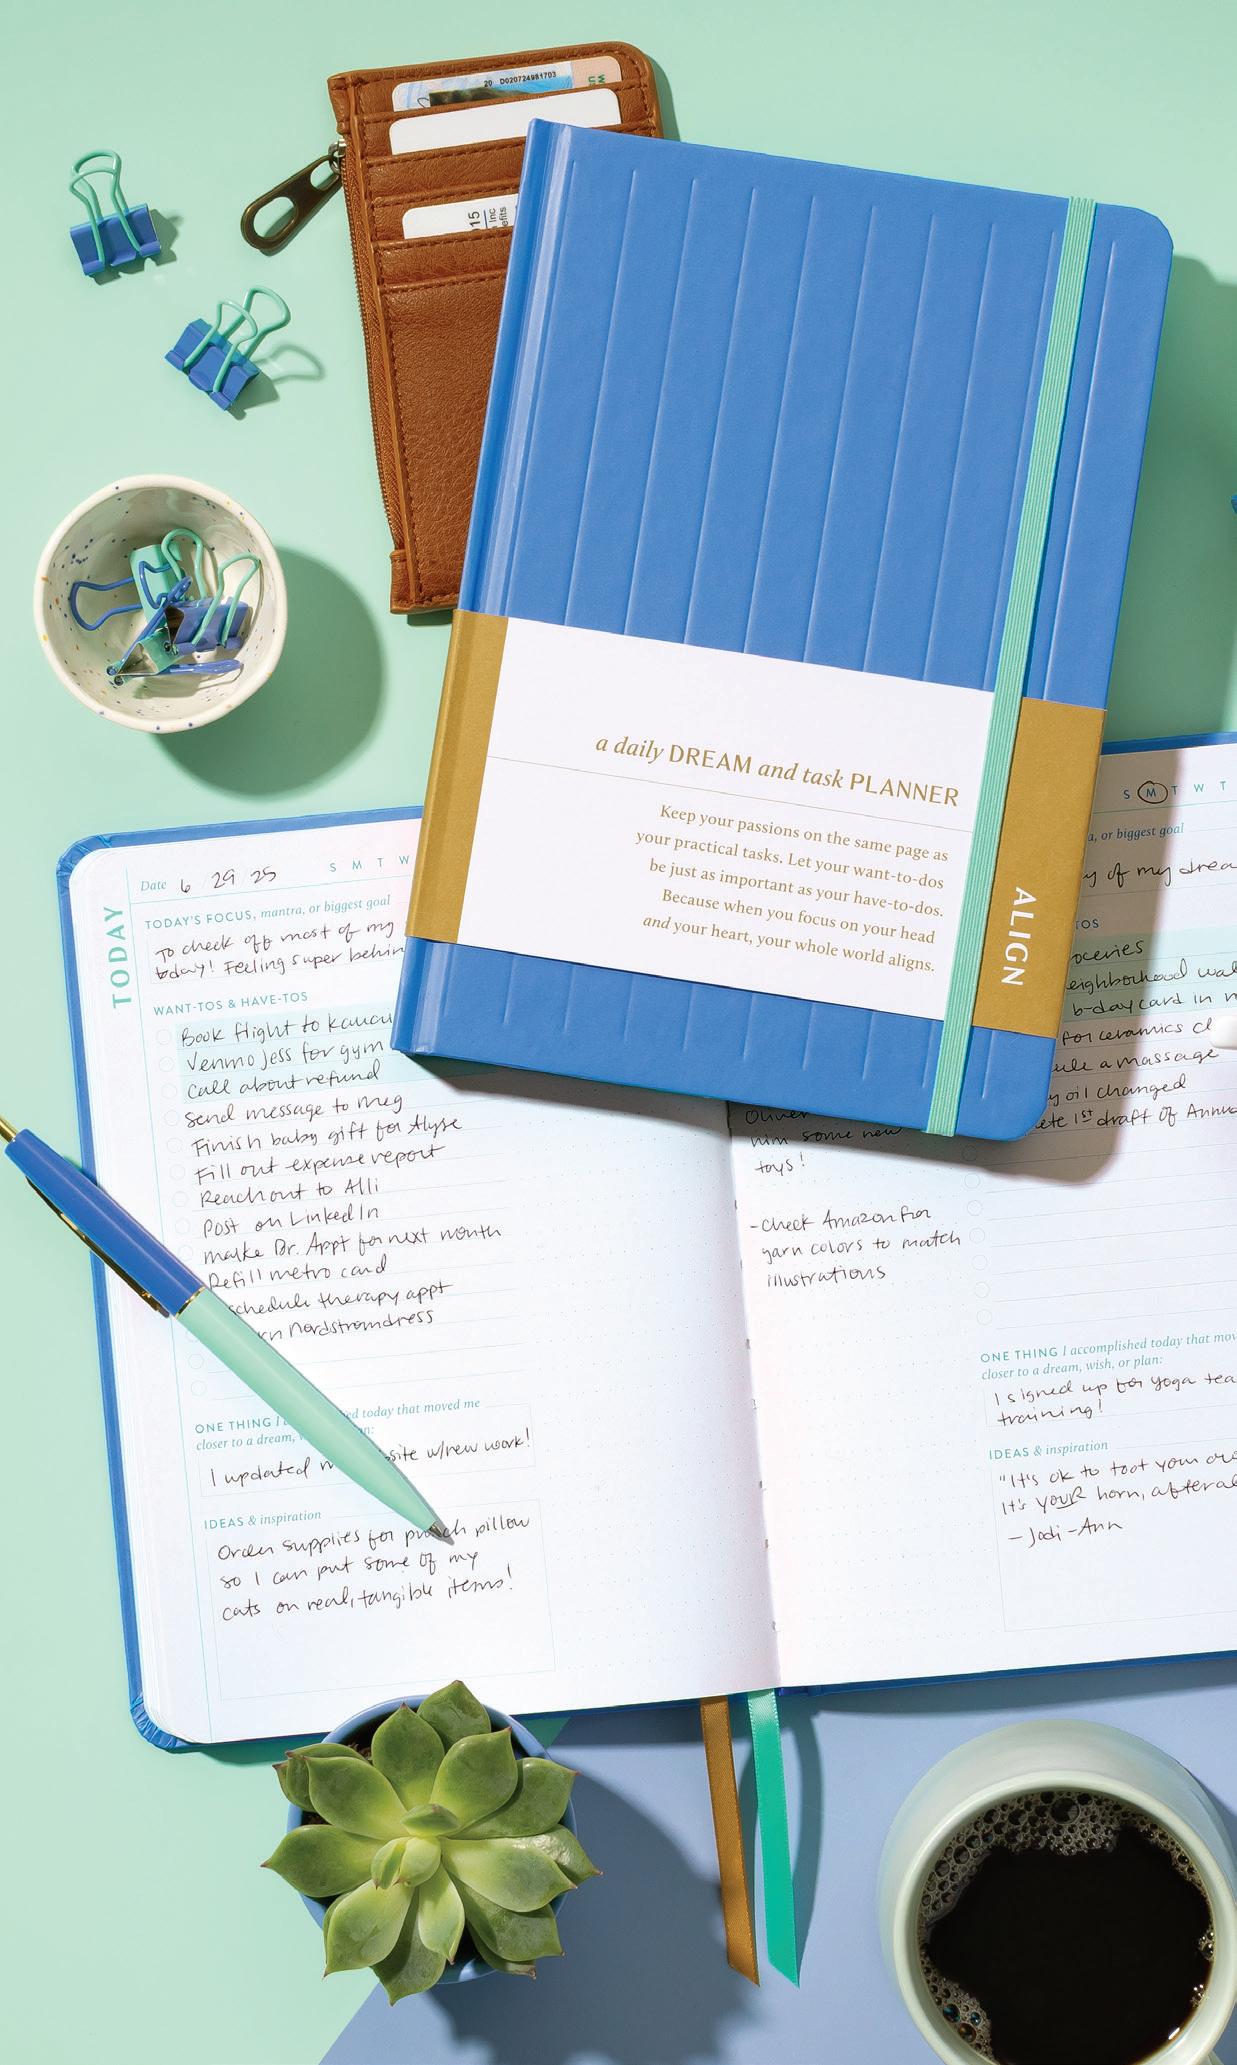 20 D020724981703
15
Inc
efits
a daily DREAM and task PLANNER
Keep your passions on the same page as
your practical tasks. Let your want-to-dos
be just as important as your have-to-dos.
Because when you focus on your head
and your heart, your whole world aligns.
ALIGN
TODAY
Date 6 / 29 / 25
S M T W
TODAY'S FOCUS, mantra, or biggest goal
To check off most of my
today! Feeling super behin
WANT-TOS & HAVE-TOS
Book flight to Kauai
Venmo Jess for gym
Call about refund
Send message to Meg
Finish baby gift for Alyse
Fill out expense report
Reach out to Alli
Post on LinkedIn
make Dr. Appt for next month
Refill metro card
schedule therapy appt
rn Nordstrom dress
ONE THING I ed today that moved me
closer to a dream, w an:
I updated m site w/new work!
IDEAS & inspiration
Order supplies for punch pillow
so I can put some of my
cats on real, tangible items!
Oliver
him some new
toys!
-check Amazon for
yarn colors to match
illustrations
S M T W T
a, or biggest goal
y of my drea
TOS
oceries
eighborhood wal
b-day card in m
for ceramics cl
ule a massage
y oil changed
ete 1st draft of Annu
ONE THING I accomplished today that mov
closer to a dream, wish, or plan:
I signed up for yoga tea
training!
IDEAS & inspiration
"It's ok to toot your ow
It's YOUR horn, after al
- Jodi-Ann